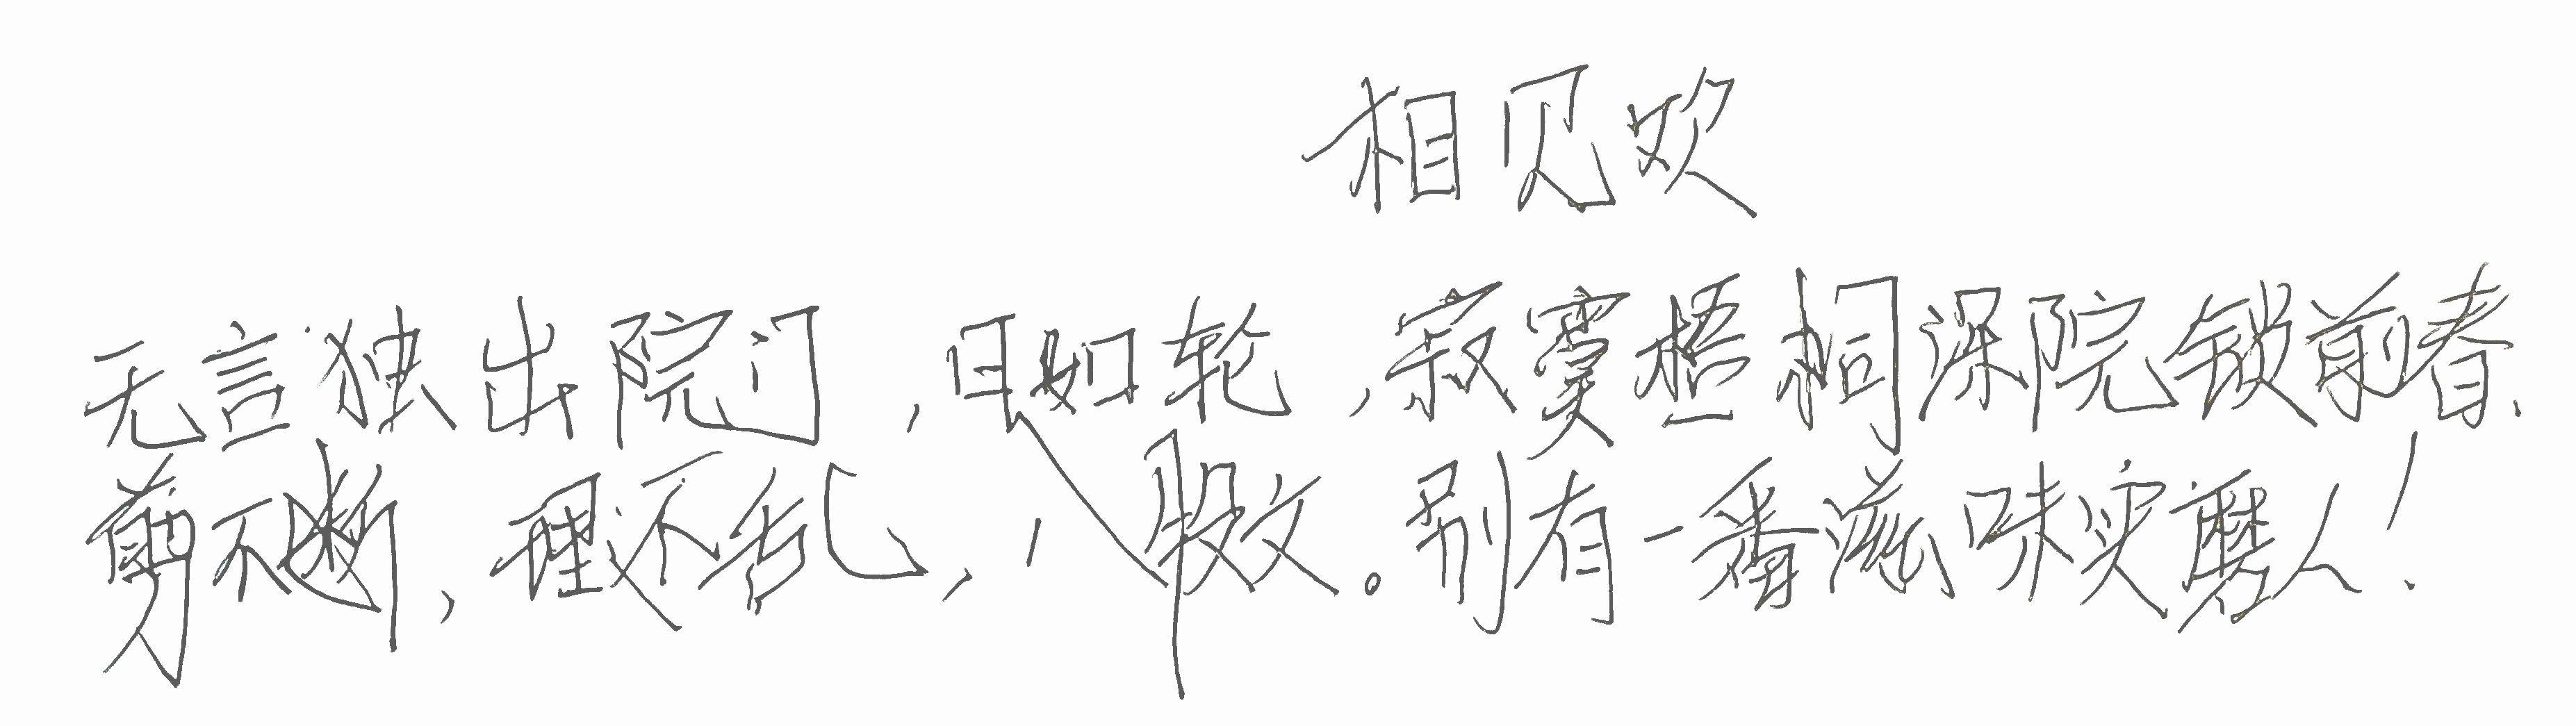 相见欢
无言独出院门,日如轮,寂寞梧桐深院锁前春.
剪不断,理还乱,,。别有一番滋味实磨人!